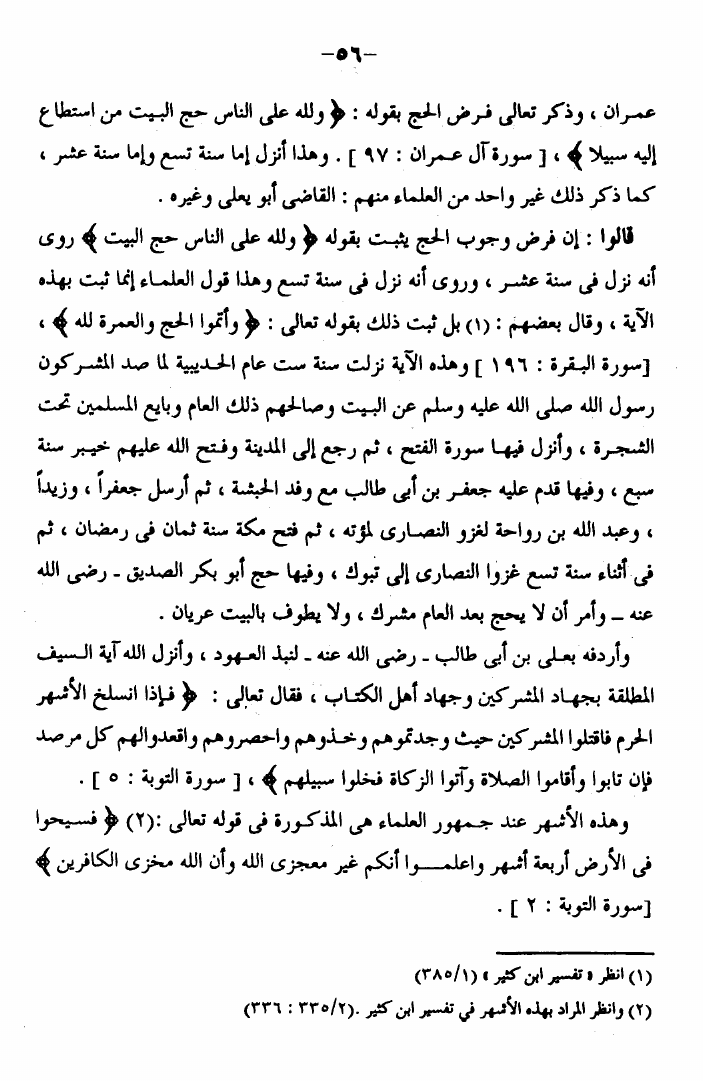 –٥٦–
عمران ، وذكر تعالى فرض الحج بقوله : ﴿ ولله على الناس حج البيت من استطاع
إليه سبيلا ﴾ ، [ سورة آل عمران : ٩٧ ] . وهذا أنزل إما سنة تسع وإما سنة عشر ،
كما ذكر ذلك غير واحد من العلماء منهم : القاضى أبو يعلى وغيره .
قالوا : إن فرض وجوب الحج يثبت بقوله ﴿ ولله على الناس حج البيت ﴾ روى
أنه نزل فى سنة عشر ، وروى أنه نزل فى سنة تسع وهذا قول العلماء إنما ثبت بهذه
الآية ، وقال بعضهم : (١) بل ثبت ذلك بقوله تعالى : ﴿ وأتموا الحج والعمرة لله ﴾ ،
[سورة البقرة : ١٩٦ ] وهذه الآية نزلت سنة ست عام الحديبية لما صد المشركون
رسول الله صلى الله عليه وسلم عن البيت وصالحهم ذلك العام وبايع المسلمين تحت
الشجرة ، وأنزل فيها سورة الفتح ، ثم رجع إلى المدينة وفتح الله عليهم خيبر سنة
سبع ، وفيها قدم عليه جعفر بن أبى طالب مع وفد الحبشة ، ثم أرسل جعفراً ، وزيداً
، وعبد الله بن رواحة لغزو النصارى لمؤته ، ثم فتح مكة سنة ثمان فى رمضان ، ثم
فى أثناء سنة تسع غزوا النصارى إلى تبوك ، وفيها حج أبو بكر الصديق ـ رضى الله
عنه ـ وأمر أن لا يحج بعد العام مشرك ، ولا يطوف بالبيت عريان .
وأردفه بعلى بن أبى طالب ـ رضى الله عنه ـ لنبذ العهود ، وأنزل الله آية السيف
المطلقة بجهاد المشركين وجهاد أهل الكتاب ، فقال تعالى : ﴿ فإذا انسلخ الأشهر
الحرم فاقتلوا المشركين حيث وجدتموهم وخذوهم واحصروهم واقعدوالهم كل مرصد
فإن تابوا وأقاموا الصلاة وآتوا الزكاة فخلوا سبيلهم ﴾ ، [ سورة التوبة : ٥ ] .
وهذه الأشهر عند جمهور العلماء هى المذكورة فى قوله تعالى :(٢) ﴿ فسيحوا
فى الأرض أربعة أشهر واعلمـــوا أنكم غير معجزى الله وأن الله مخزى الكافرين ﴾
[سورة التوبة : ٢ ] .
(١) انظر « تفسير ابن كثير » (٣٨٥/١)
(٢) وانظر المراد بهذه الأشهر في تفسير ابن كثير .(٣٣٥/٢ : ٣٣٦)